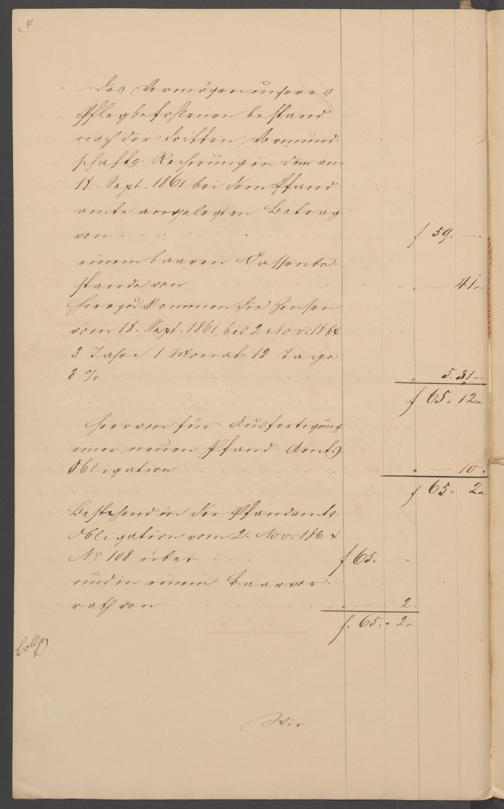 4.
Das Vermögen unseres
Pflegbefohlenen bestand
nach der dritten Vormund-
schafts Rechnung in dem am
18. Sept. 1861 bei dem Pfand-
amte angelegten Betrag
von . . . f 59. —
einem baaren Cassenbe-
stande von . . . 41 „
hiezu kommen die Zinsen
vom 18. Sept. 1861 bis 2 Nov. 1864
3 Jahre 1 Monat 12 Tage
3 % „ 5. 31 „
f 65. 12 „
hievon für Ausfertigung
einer neuen Pfand Amts
Obligation . . . „ 10 „
f 65. 2 „
Bestehend in der Pfandamts
Obligation vom 2. Nov. 1864
No 108 über . . . f 65. —
und in einem Baarvor-
rath von . . . „ 2.
f. 65. 2 „
Wir